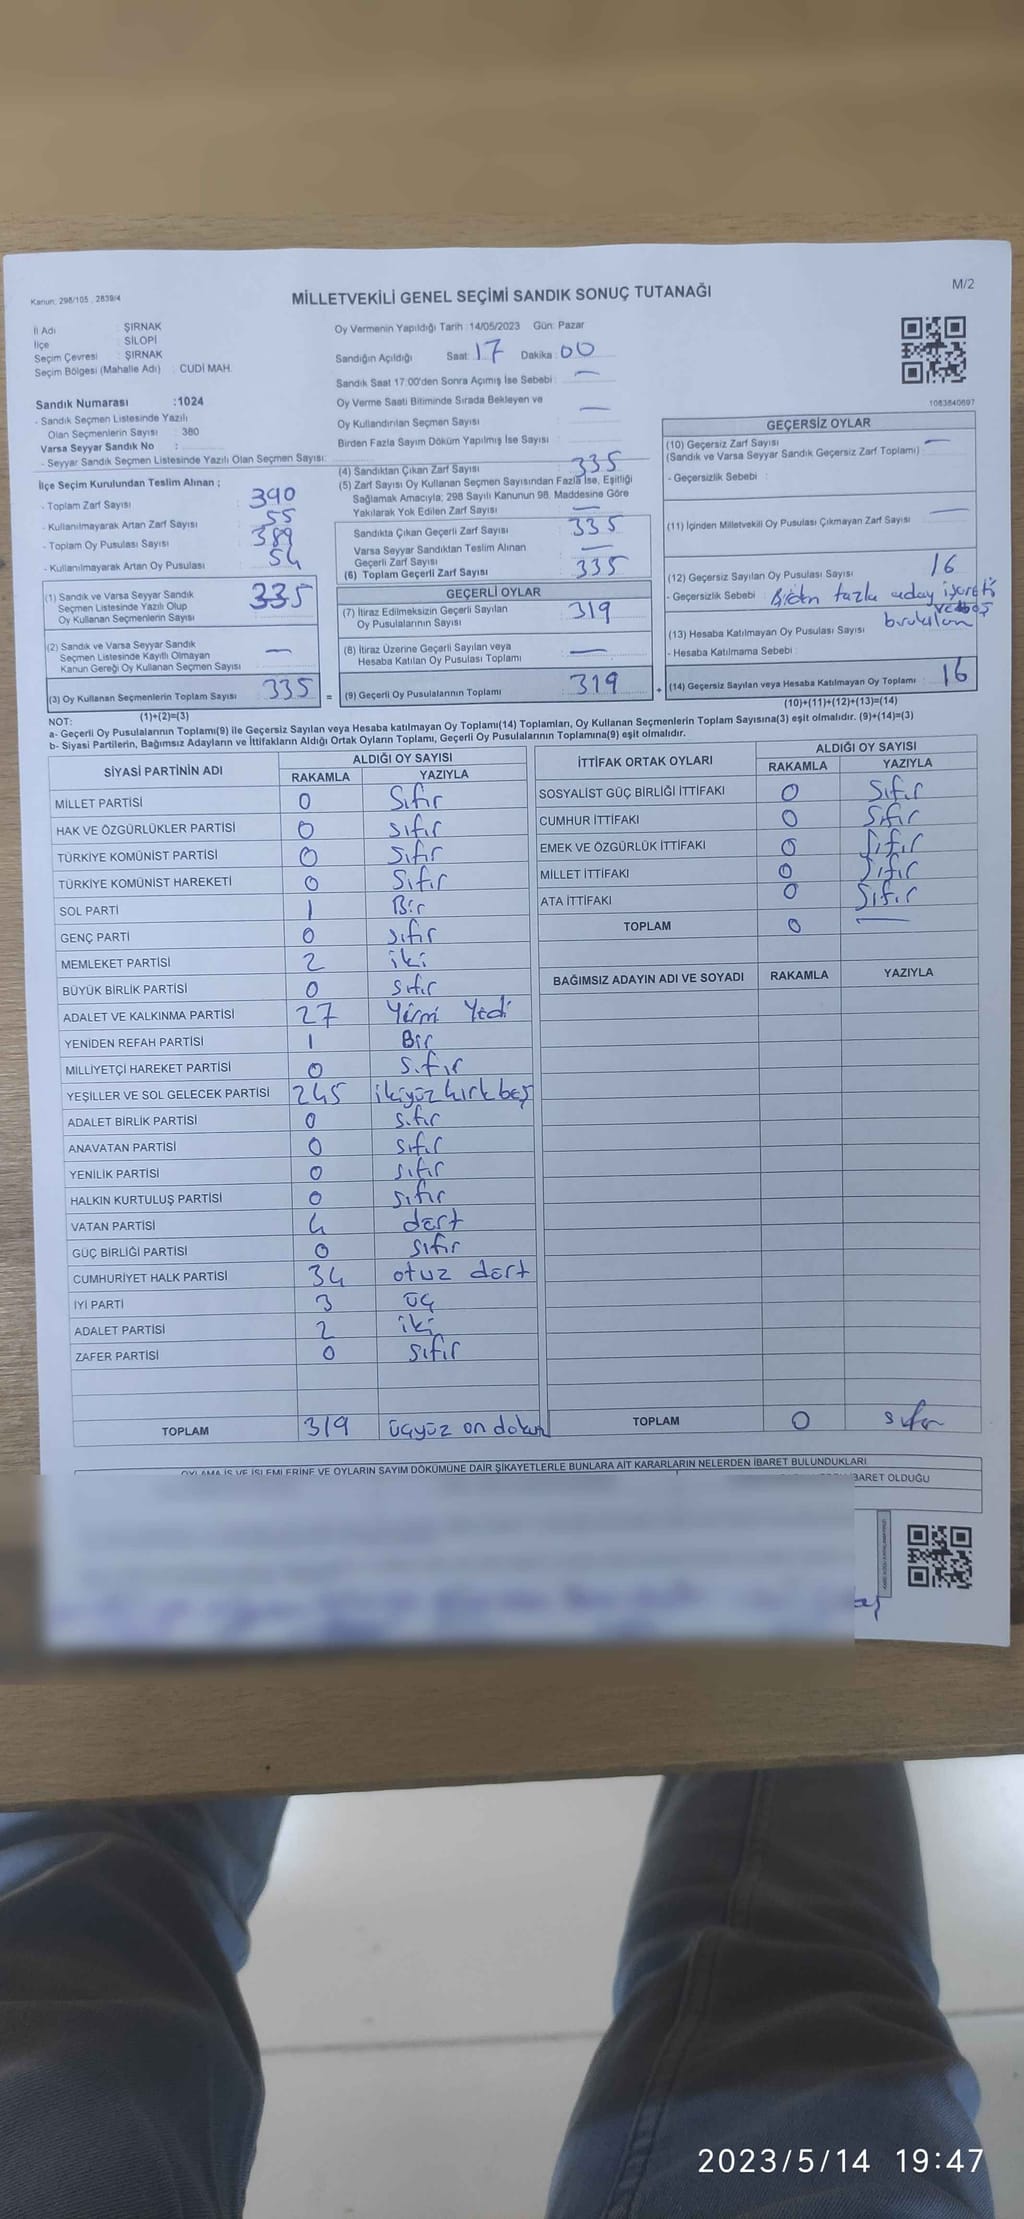 Kanun: 298/105 , 2839/4
MİLLETVEKİLİ GENEL SEÇİMİ SANDIK SONUÇ TUTANAĞI
M/2
İl Adı : ŞIRNAK
İlçe : SİLOPİ
Seçim Çevresi : ŞIRNAK
Seçim Bölgesi (Mahalle Adı) : CUDİ MAH.
Sandık Numarası :1024
- Sandık Seçmen Listesinde Yazılı
Olan Seçmenlerin Sayısı : 380
Varsa Seyyar Sandık No :
- Seyyar Sandık Seçmen Listesinde Yazılı Olan Seçmen Sayısı:
Oy Vermenin Yapıldığı Tarih :14/05/2023 Gün: Pazar
Sandığın Açıldığı Saat: 17 Dakika: 00
Sandık Saat 17:00'den Sonra Açımış İse Sebebi : —
Oy Verme Saati Bitiminde Sırada Bekleyen ve
Oy Kullandırılan Seçmen Sayısı —
Birden Fazla Sayım Döküm Yapılmış İse Sayısı :
1083840697
İlçe Seçim Kurulundan Teslim Alınan ;
- Toplam Zarf Sayısı 390
- Kullanılmayarak Artan Zarf Sayısı 55
- Toplam Oy Pusulası Sayısı 389
- Kullanılmayarak Artan Oy Pusulası 54
(1) Sandık ve Varsa Seyyar Sandık
Seçmen Listesinde Yazılı Olup
Oy Kullanan Seçmenlerin Sayısı 335
(2) Sandık ve Varsa Seyyar Sandık
Seçmen Listesinde Kayıtlı Olmayan
Kanun Gereği Oy Kullanan Seçmen Sayısı —
(3) Oy Kullanan Seçmenlerin Toplam Sayısı 335
(1)+(2)=(3)
(4) Sandıktan Çıkan Zarf Sayısı 335
(5) Zarf Sayısı Oy Kullanan Seçmen Sayısından Fazla İse, Eşitliği
Sağlamak Amacıyla; 298 Sayılı Kanunun 98. Maddesine Göre
Yakılarak Yok Edilen Zarf Sayısı —
Sandıkta Çıkan Geçerli Zarf Sayısı 335
Varsa Seyyar Sandıktan Teslim Alınan
Geçerli Zarf Sayısı —
(6) Toplam Geçerli Zarf Sayısı 335
GEÇERLİ OYLAR
(7) İtiraz Edilmeksizin Geçerli Sayılan
Oy Pusulalarının Sayısı 319
(8) İtiraz Üzerine Geçerli Sayılan veya
Hesaba Katılan Oy Pusulası Toplamı —
= (9) Geçerli Oy Pusulalarının Toplamı 319
GEÇERSİZ OYLAR
(10) Geçersiz Zarf Sayısı —
(Sandık ve Varsa Seyyar Sandık Geçersiz Zarf Toplamı) :
- Geçersizlik Sebebi :
(11) İçinden Milletvekili Oy Pusulası Çıkmayan Zarf Sayısı —
(12) Geçersiz Sayılan Oy Pusulası Sayısı 16
- Geçersizlik Sebebi : Birden fazla aday işareti
ve boş
bırakılan
(13) Hesaba Katılmayan Oy Pusulası Sayısı
- Hesaba Katılmama Sebebi :
+ (14) Geçersiz Sayılan veya Hesaba Katılmayan Oy Toplamı : 16
(10)+(11)+(12)+(13)=(14)
NOT:
a- Geçerli Oy Pusulasının Toplamı(9) ile Geçersiz Sayılan veya Hesaba katılmayan Oy Toplamı(14) Toplamları, Oy Kullanan Seçmenlerin Toplam Sayısına(3) eşit olmalıdır. (9)+(14)=(3)
b- Siyasi Partilerin, Bağımsız Adayların ve İttifakların Aldığı Ortak Oyların Toplamı, Geçerli Oy Pusulalarının Toplamına(9) eşit olmalıdır.
SİYASİ PARTİNİN ADI ALDIĞI OY SAYISI
RAKAMLA YAZIYLA
MİLLET PARTİSİ 0 Sıfır
HAK VE ÖZGÜRLÜKLER PARTİSİ 0 sıfır
TÜRKİYE KOMÜNİST PARTİSİ 0 Sıfır
TÜRKİYE KOMÜNİST HAREKETİ 0 Sıfır
SOL PARTİ 1 Bir
GENÇ PARTİ 0 sıfır
MEMLEKET PARTİSİ 2 iki
BÜYÜK BİRLİK PARTİSİ 0 sıfır
ADALET VE KALKINMA PARTİSİ 27 Yirmi Yedi
YENİDEN REFAH PARTİSİ 1 Bir
MİLLİYETÇİ HAREKET PARTİSİ 0 sıfır
YEŞİLLER VE SOL GELECEK PARTİSİ 245 ikiyüz kırk beş
ADALET BİRLİK PARTİSİ 0 sıfır
ANAVATAN PARTİSİ 0 sıfır
YENİLİK PARTİSİ 0 sıfır
HALKIN KURTULUŞ PARTİSİ 0 sıfır
VATAN PARTİSİ 4 dört
GÜÇ BİRLİĞİ PARTİSİ 0 sıfır
CUMHURİYET HALK PARTİSİ 34 otuz dört
İYİ PARTİ 3 üç
ADALET PARTİSİ 2 iki
ZAFER PARTİSİ 0 sıfır
TOPLAM 319 üçyüz on dokuz
İTTİFAK ORTAK OYLARI ALDIĞI OY SAYISI
RAKAMLA YAZIYLA
SOSYALİST GÜÇ BİRLİĞİ İTTİFAKI 0 Sıfır
CUMHUR İTTİFAKI 0 Sıfır
EMEK VE ÖZGÜRLÜK İTTİFAKI 0 Sıfır
MİLLET İTTİFAKI 0 Sıfır
ATA İTTİFAKI 0 Sıfır
TOPLAM 0 —
BAĞIMSIZ ADAYIN ADI VE SOYADI RAKAMLA YAZIYLA
TOPLAM 0 sıfır
OYLAMA İŞ VE İŞLEMLERİNE VE OYLARIN SAYIM DÖKÜMÜNE DAİR ŞİKAYETLERLE BUNLARA AİT KARARLARIN NELERDEN İBARET BULUNDUKLARI
İBARET OLDUĞU
2023/5/14 19:47